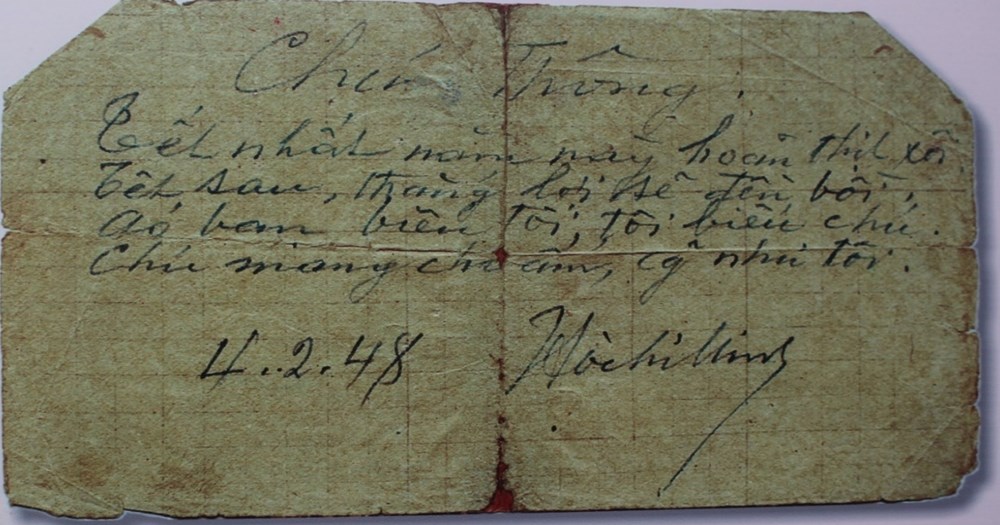 Chú Thông.
Tết nhất năm nay hoãn thịt xôi
Tết sau, thắng lợi sẽ đền bồi,
Áo bạn biếu tôi, tôi biếu chú.
Chú mang cho ấm, cg như tôi.
4.2.48 Hồ Chí Minh